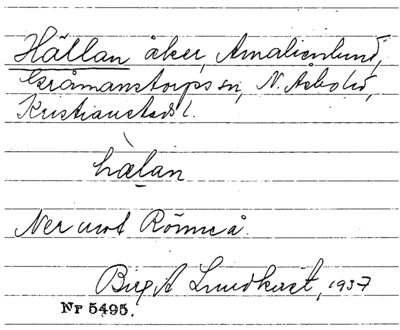 Hällan åker, Amalienlund,
Gråmanstorps sn, N. Åsbo hd,
Kristianstads l.
hälan
Ner mot Rönneå.
Birgit Lundkvist, 1937
Nr 5495.